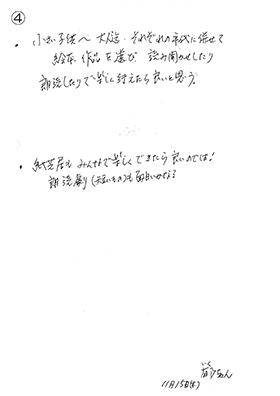 ④
・小さい子供〜大人迄、それぞれの年代に併せて
絵本、作品を選び 読み聞かせしたり
朗読したりで楽しく行えたら良いと思う。
・紙芝居も みんなで楽しくできたら良いのでは!
朗読劇(短いもの)も面白いかな?
11月15日